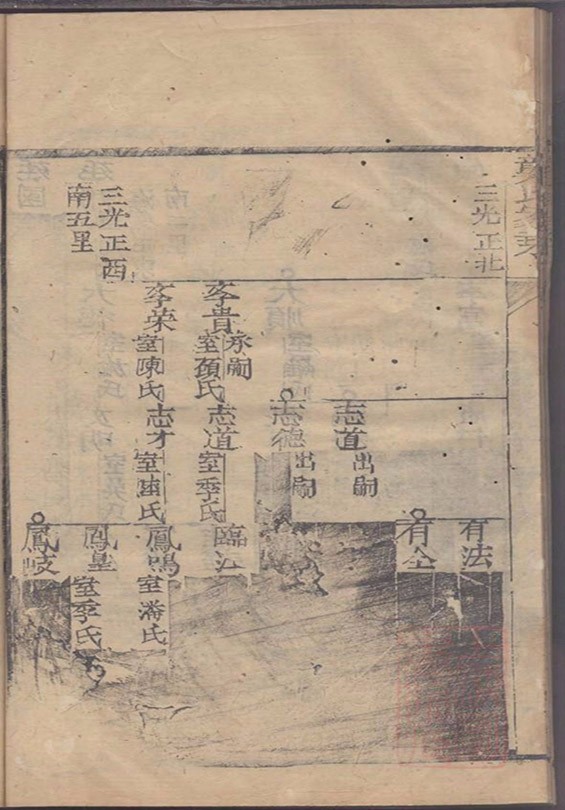 三光正北
志道
出嗣
有法
志德
出嗣
有全
李貴
承嗣
室顏氏
志道
室季氏
臨江
李荣
室陳氏
志才
室陳氏
鳳鳴
室潘氏
鳳皇
室季氏
鳳岐
三光正西
南五里